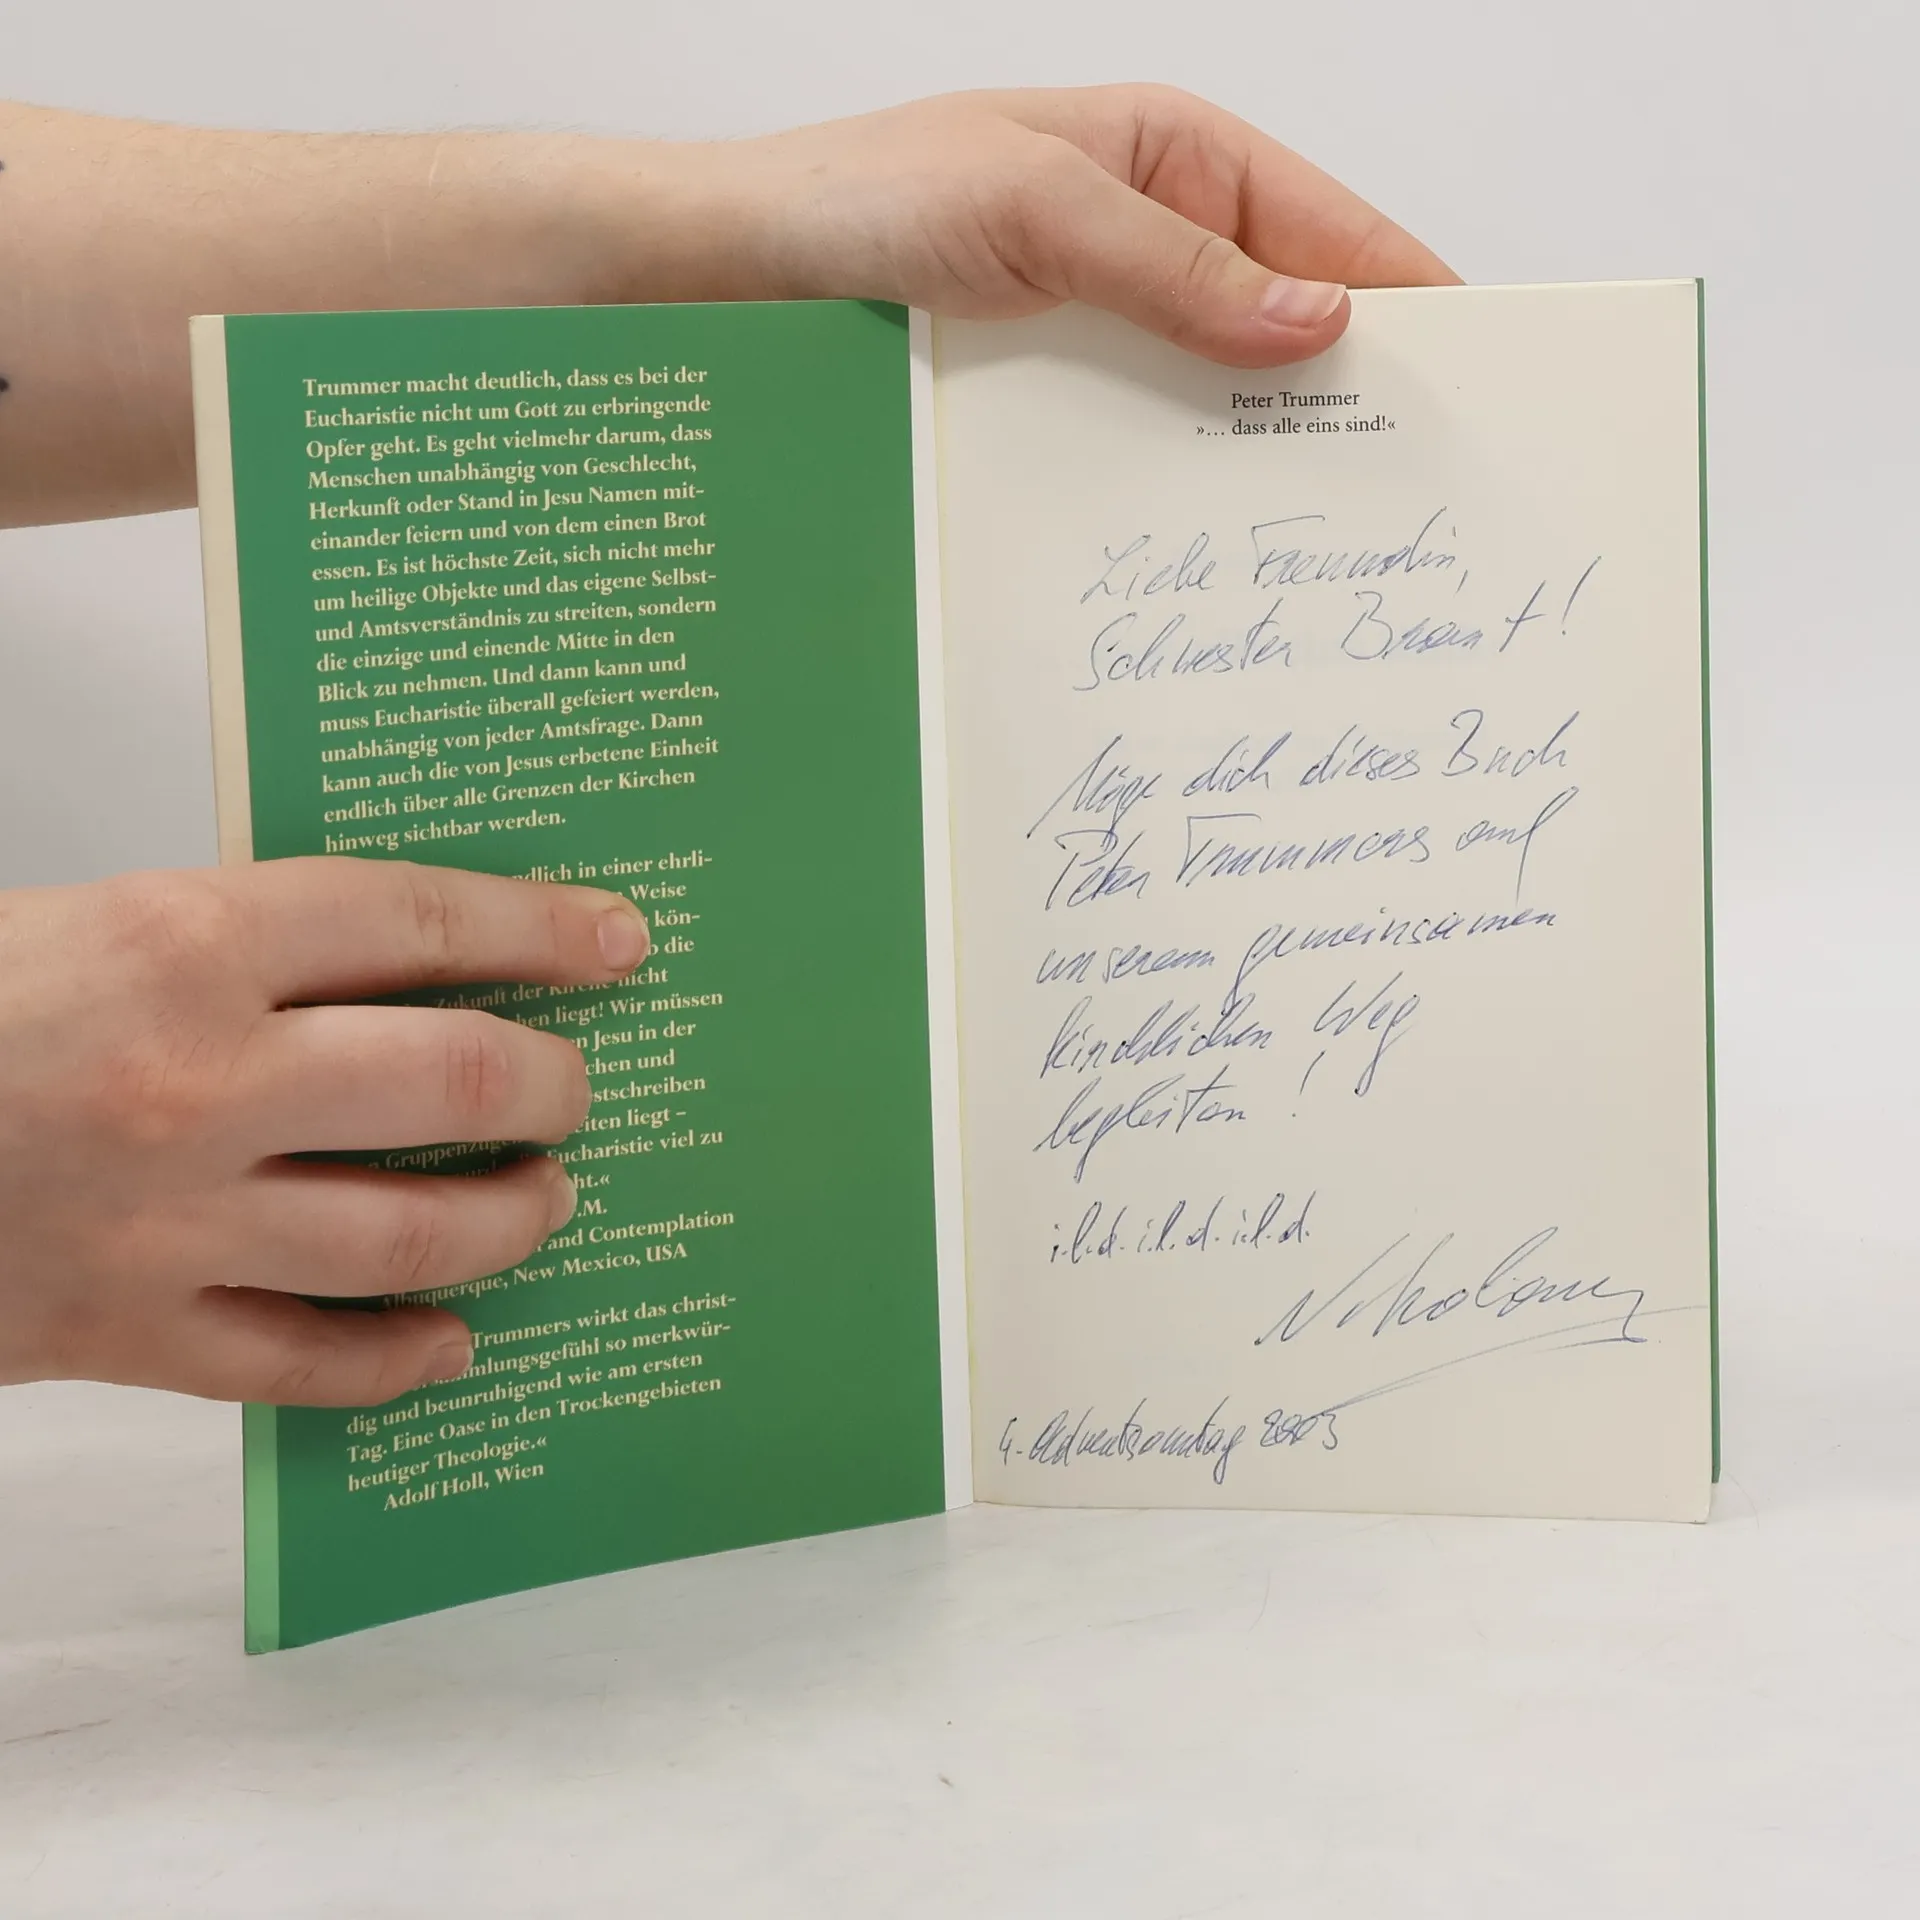 Trummer macht deutlich, dass es bei der
Eucharistie nicht um Gott zu erbringende
Opfer geht. Es geht vielmehr darum, dass
Menschen unabhängig von Geschlecht,
Herkunft oder Stand in Jesu Namen mit-
einander feiern und von dem einen Brot
essen. Es ist höchste Zeit, sich nicht mehr
um heilige Objekte und das eigene Selbst-
und Amtsverständnis zu streiten, sondern
die einzige und einende Mitte in den
Blick zu nehmen. Und dann kann und
muss Eucharistie überall gefeiert werden,
unabhängig von jeder Amtsfrage. Dann
kann auch die von Jesus erbetene Einheit
endlich über alle Grenzen der Kirchen
hinweg sichtbar werden.
in einer ehrli-
Weise
kön-
die
Zukunft der Kirche nicht
liegt! Wir müssen
Jesu in der
und
liegt –
Gruppenzuge Eucharistie viel zu
.M.
and Contemplation
Albuquerque, New Mexico, USA
Trummers wirkt das christ-
so merkwür-
dig und beunruhigend wie am ersten
Tag. Eine Oase in den Trockengebieten
heutiger Theologie.«
Adolf Holl, Wien
Peter Trummer
»... dass alle eins sind!«
Liebe Freundin,
Schwester Braut!
Möge dich dieses Buch
Peter Trummers auf
unserem gemeinsamen
kirchlichen Weg
begleiten!
i.l.d. i.l.d. i.l.d.
4. Adventsonntag 2003